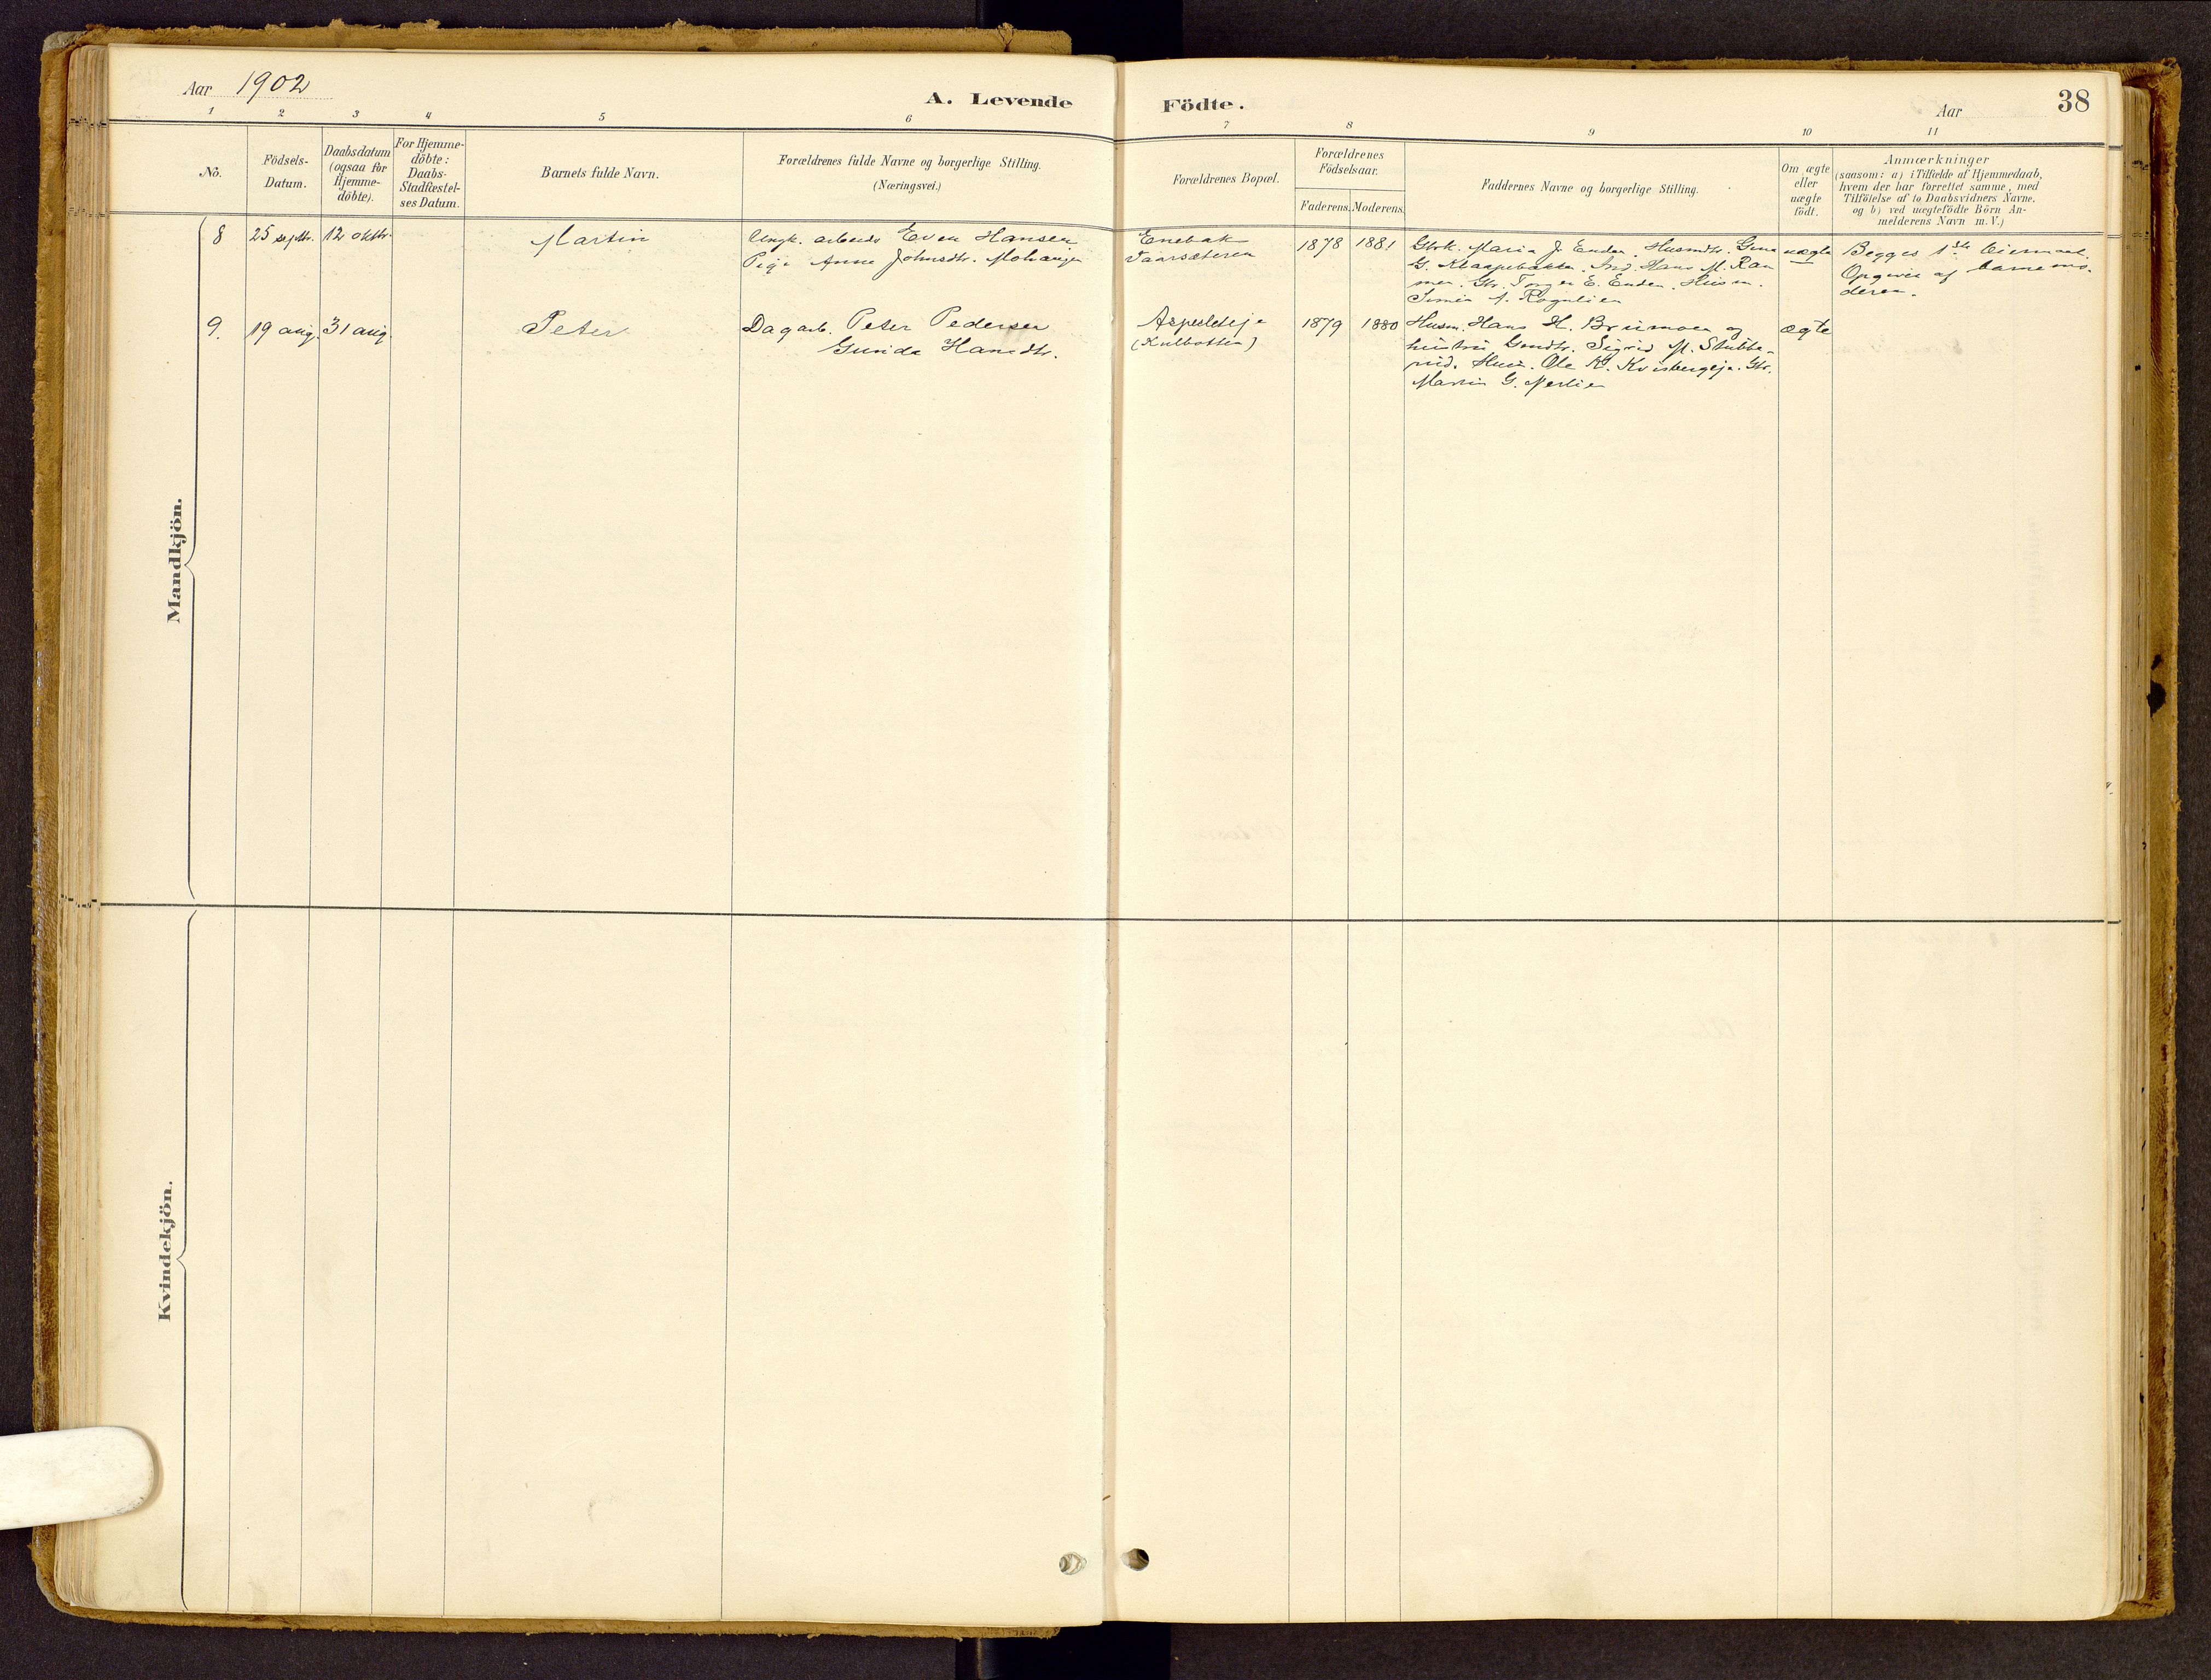 Aar 1902
A. Levende Födte.
Aar
38
1 2 3 4 5 6 7 8 9 10 11
No.
Födsels-
Datum.
Daabsdatum
(ogsaa for
Hjemme-
döbte).
For Hjemme-
döbte:
Daabs-
Stadfæstel-
ses Datum.
Barnets fulde Navn.
Forældrenes fulde Navne og borgerlige Stilling.
(Næringsvei.)
Forældrenes Bopæl.
Forældrenes
Födselsaar.
Faderens. Moderens.
Faddernes Navne og borgerlige Stilling.
Om ægte
eller
uægte
födt.
Anmærkninger
(saasom: a) i Tilfælde af Hjemmedaab,
hvem der har forrettet samme, med
Tilföielse af to Daabsvidners Navne.
og b) ved uægtefödte Börn An-
melderens Navn m. V.)
Mandkjön.
8
25 septbr.
12 oktbr.
Martin
Ungk. arbeids Even Hansen
Pige Anne Johnsdtr. Mohaugen
Enebak
Vaarsæteren
1878
1881
Gbrk. Maria J. Enden. Husmdtr. Gina
G. Klaapebakken. Ind. Hans M. Ram
men. Gbr. Torger E. Enden. Husm.
A. Rognlien
uægte
Begges 1ste leiermaal.
Opgivet af barnemo-
deren.
9.
19 aug.
31 aug.
Peter
Dagarb. Peter Pedersen
Gunida Hansdtr.
Aspesleteje
(Kulbotten)
1879
1880
Husm. Hans H. Brumoen og
hustru Sigrid M. Stubbe-
rud. Ole K. Kvisbergeje. Gbr.
Martin G. Nerlien
ægte
Kvindekjön.